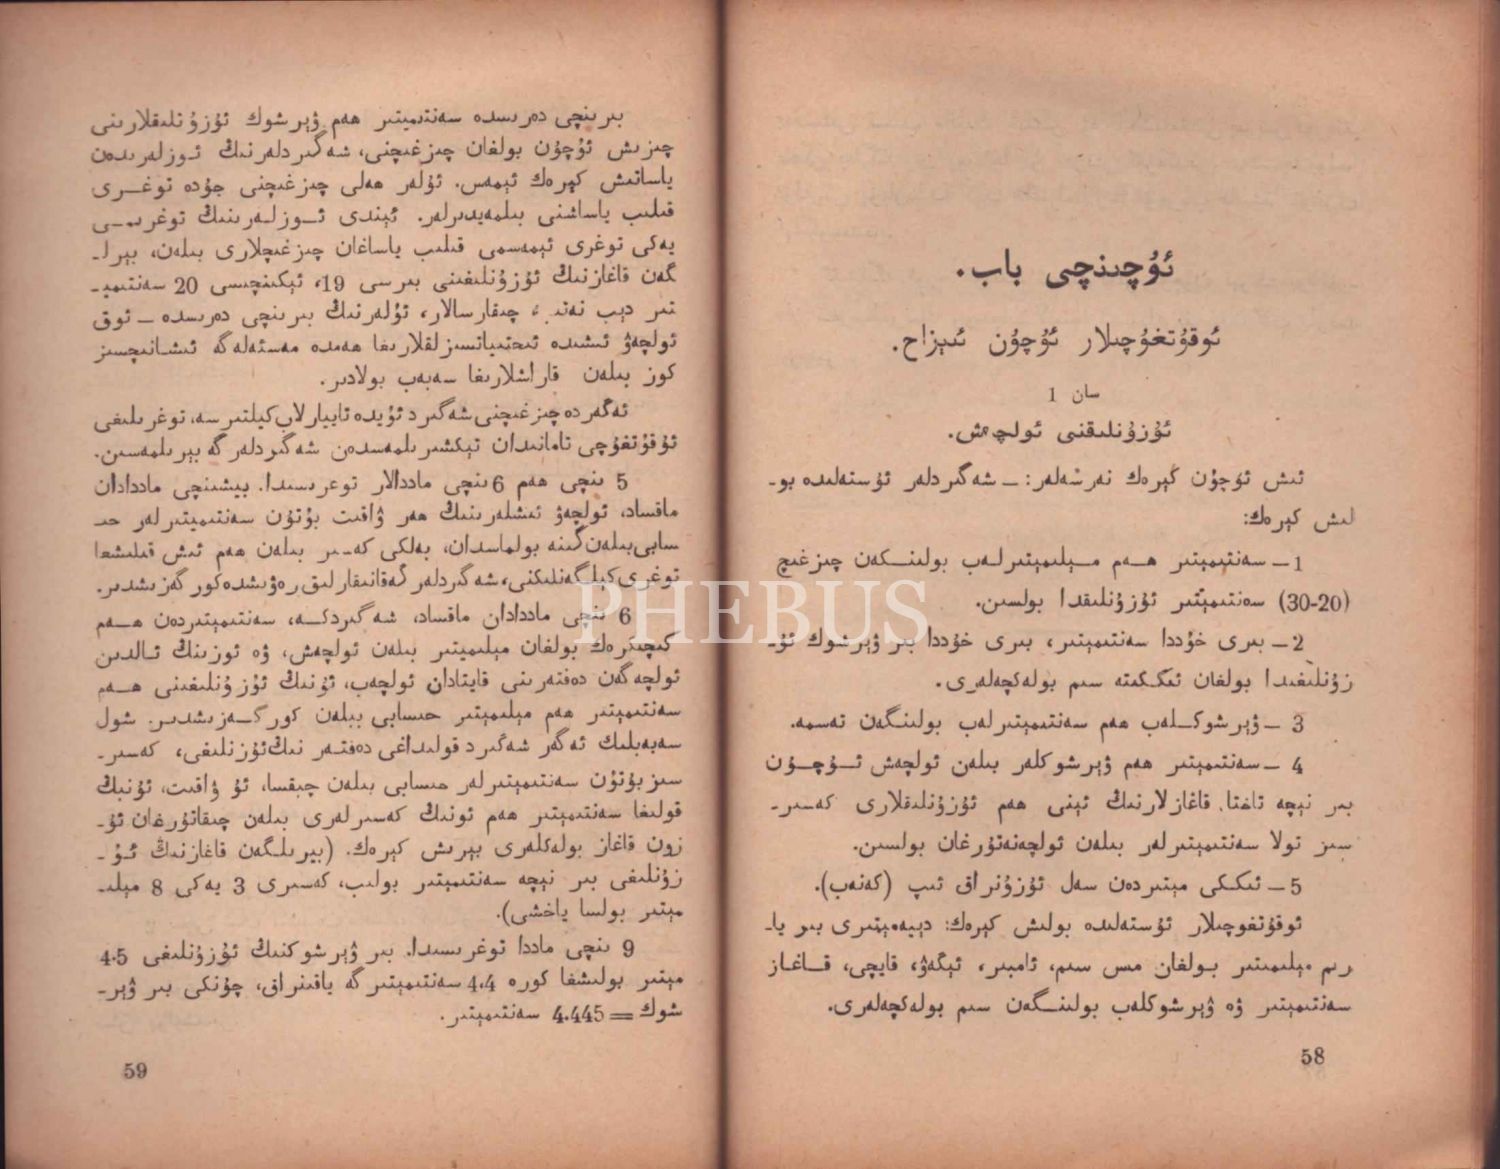 ئۇچىنچى باب.
ئوقۇتغۇچىلار ئۇچۇن ئىيزاح.
سان 1
ئۇزۇنلىقنى ئولچەش.
ئىش ئۇچۇن كېرەك نەرسەلەر: — شەگىردلەر ئۇستەلىدە بو-
لىش كېرەك:
1 — سەنتىمېتىر ھەم مىېلىمېتىرلەب بولىنگەن چىزغىچ
(30-20) سەنتىمېتىر ئۇزۇنلىقدا بولسىن.
2 — بىرى خۇددا سەنتىمېتىر، بىرى خۇددا بىر ۋېرشوك ئۇ-
زۇنلىغىدا بولغان ئىككىتە سىم بولەكچەلەرى.
3 — ۋېرشوكلەب ھەم سەنتىمېتىرلەب بولىنگەن تەسمە.
4 — سەنتىمېتىر ھەم ۋېرشوكلەر بىلەن ئولچەش ئۇچۇن
بىر نېچە تاختا. قاغازلارنىڭ ئېنى ھەم ئۇزۇنلىقلارى كەسىر-
سىز تولا سەنتىمېتىرلەر بىلەن ئولچەنەتۇرغان بولسىن.
5 — ئىككى مېتىردەن سەل ئۇزۇنراق ئىپ (كەنەب).
ئوقۇتغوچىلار ئۇستەلىدە بولىش كېرەك: دېيەمېتىرى بىر يا-
رىم مېلىمىتىر بولغان مىس سىم، ئامبىر، ئېگەۋ، قايچى، قاغاز
سەنتىمېتىر ۋە ۋېرشوكلەب بولىنگەن سىم بولەكچەلەرى.
58
بىرىنچى دەرىسدە سەنتىمېتىر ھەم ۋېرشوك ئۇزۇنلىقلارىنى
چىزىش ئۇچۇن بولغان چىزغىچنى، شەگىردلەرنىڭ ئوزلەرىدەن
ياساتىش كېرەك ئېمەس. ئۇلەر ھەلى چىزغىچنى جۇدە توغرى
قىلىب ياساشنى بىلمەيدىرلەر. ئېندى ئوزلەرىنىڭ توغرىمى
يەكى توغرى ئېمەسمى قىلىب ياساغان چىزغىچلارى بىلەن، بېرىل-
گەن قاغازنىڭ ئۇزۇنلىغىنى بىرسى 19، ئېكىنچىسى 20 سەنتىمې-
تىر دېب چىقارسالار، ئۇلەرنىڭ بىرىنچى دەرىسدە — ئوق
ئولچەۋ ئىشىدە ئىحتىياتسىزلقلارىغا ھەمدە مەسئەلەگە ئىشانىچسىز
كوز بىلەن قاراشلارىغا سەبەب بولادىر.
ئەگەردە چىزغىچنى شەگىرد ئۇيدە تاييارلاب كىلتىرسە، توغرىلىغى
ئۇقۇتغۇچى تامانىدان تېكشىرىلمەسدەن شەگىردلەرگە بېرىلمەسىن.
5 ىنچى ھەم 6 ىنچى ماددالار توعرىسىدا. بېشىنچى ماددادان
ماقساد، ئولچەۋ ئىشلەرىنىڭ ھەر ۋاقىت بۇتۇن سەنتىمېتىرلەر حى-
سابى بىلەن گىنە بولماسدان، بەلكى كەسىر بىلەن ھەم ئىش قىلىشعا
توغرى كېلگەنلىكنى، شەگىردلەرگە قانىقارلىق رەۋىشدە كورگەزىشدىر.
6 ىنچى ماددادان ماقساد، شەگىردكە، سەنتىمېتىردەن ھەم
كىچىكرەك بولغان مېلىمېتىر بىلەن ئولچەش، ۋە ئوزىنىڭ ئالدىن
ئولچەگەن دەفتەرىنى قايتادان ئولچەب، ئۇنىڭ ئۇزۇنلىغىنى ھەم
سەنتىمېتىر ھەم مېلىمېتىر حىسابى بىلەن كورگەزىشدىر. شول
سەبەبلىك ئەگەر شەگىرد قولىداغى دەفتەرنىڭ ئۇزنلىغى، كەسىر-
سىز بۇتۇن سەنتىمېتىرلەر حىسابى بىلەن چىقسا، ئۇ ۋاقىت، ئۇنىڭ
قولىغا سەنتىمېتىر ھەم ئونىڭ كەسىرلەرى بىلەن چىقاتۇرغان ئۇ-
زون قاغاز بولەكلەرى بېرىش كېرەك. (بىرىلگەن قاغازنىڭ ئۇ-
زۇنلىغى بىر نېچە سەنتىمېتىر بولىب، كەسىرى 3 يەكى 8 مېلى-
مېتىر بولسا ياخشى).
9 ىنچى ماددا توغرىسىدا. بىر ۋېرشوكنىڭ ئۇزۇنلىغى 4.5
مېتىر بولىشغا كورە 4.4 سەنتىمېتىرگە ياقىنراق، چۇنكى بىر ۋېر-
شوك = 4.445 سەنتىمېتىر.
59
PHEBUS